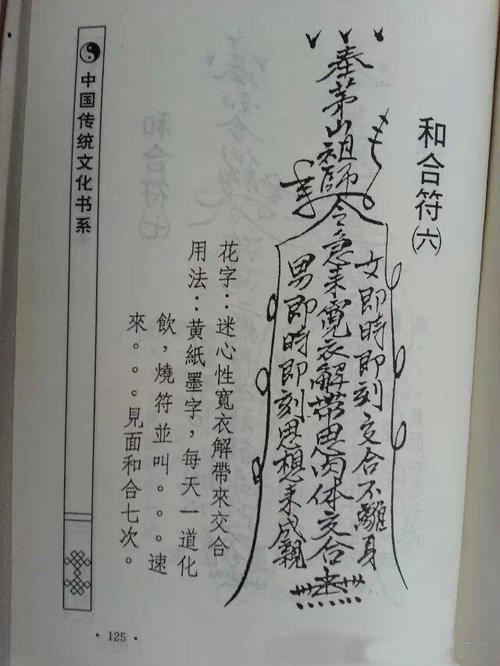 和合符㈥
奉茅山祖師令急来寛衣解帶思肉体交合来
女即時即刻交合不離身
男即時即刻思想来成親
花字：迷心性寬衣解帶來交合
用法：黄紙墨字，每天一道化
飲，燒符並叫。。。速
來。。。見面和合七次。
中国传统文化书系
·125·